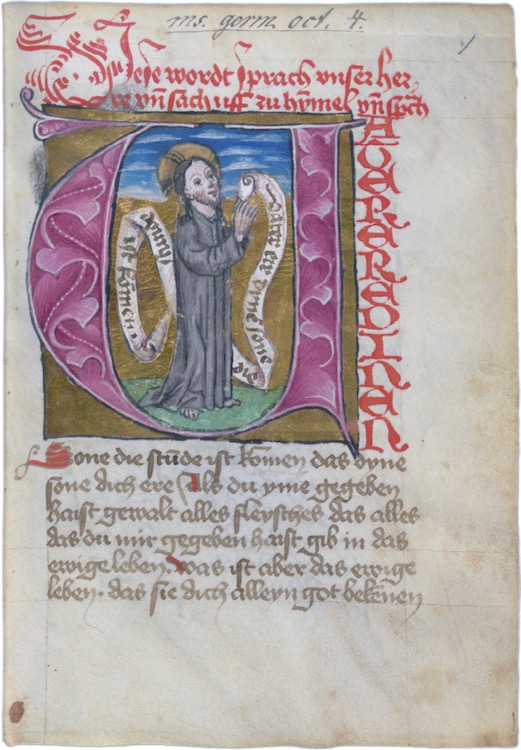 ms. germ. oct. 4.
1
Diese wordt sprach vnser her
re vñ sach uff zu hymel vñ
VATER ERE DINEN
vater ere dyne sone die
stunde ist komen
Sone die stūde ist komen das dyne
sone dich ere Als du yme gegeben
haist gewalt alles fleysches das alles
das du mir gegeben haist gib in das
ewige leben. was ist aber das ewige
leben. das sie dich alleyn got bekēnen